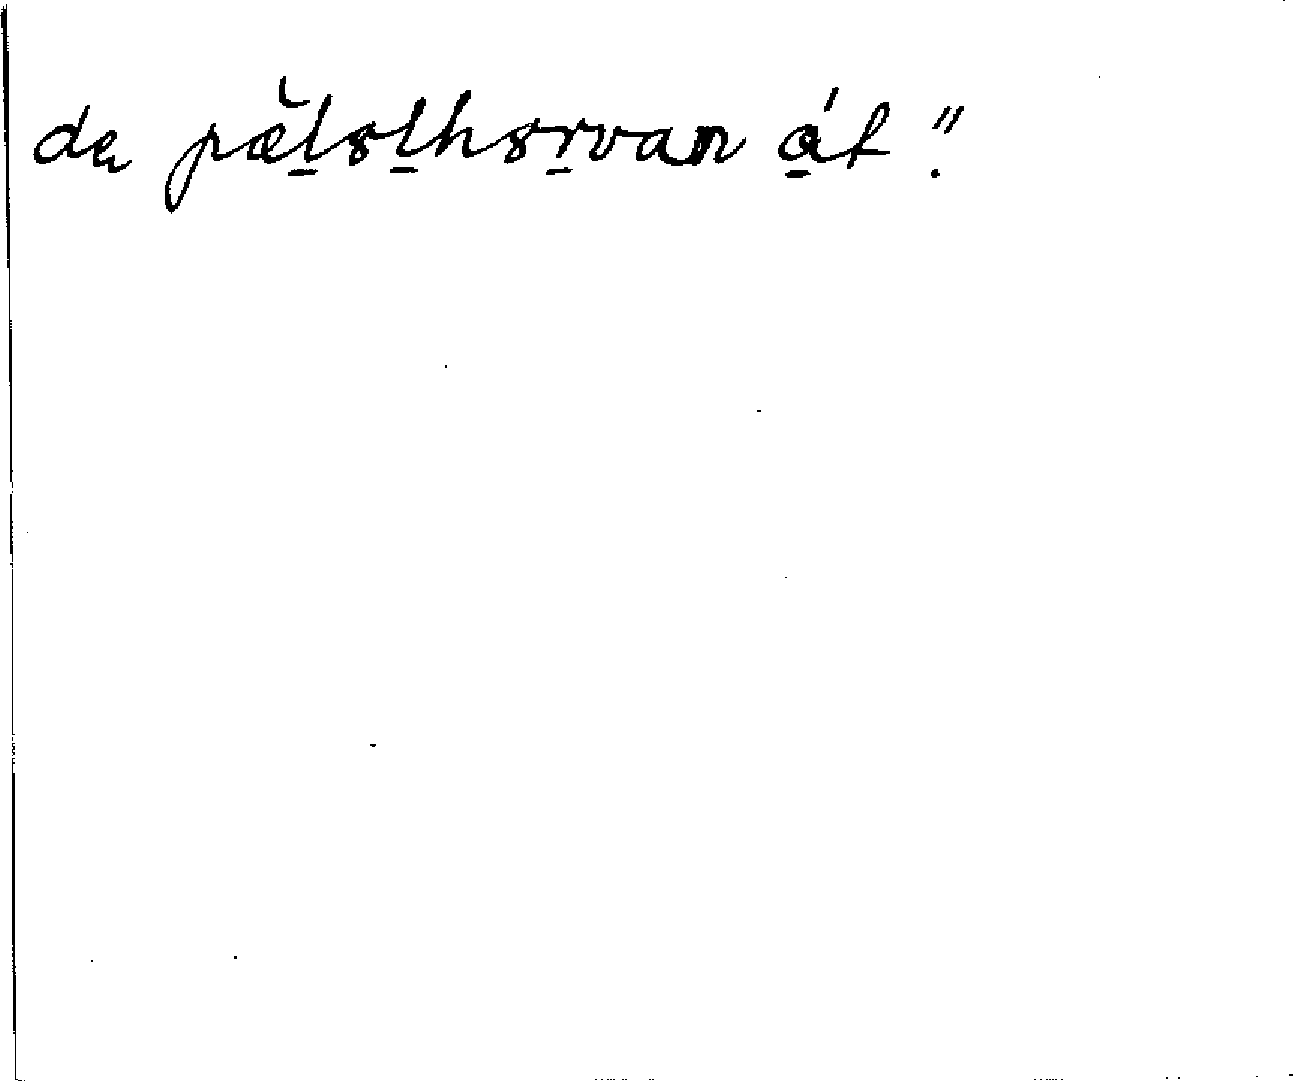 de pæ̆l̲sl̲hsr̲van á̲t."